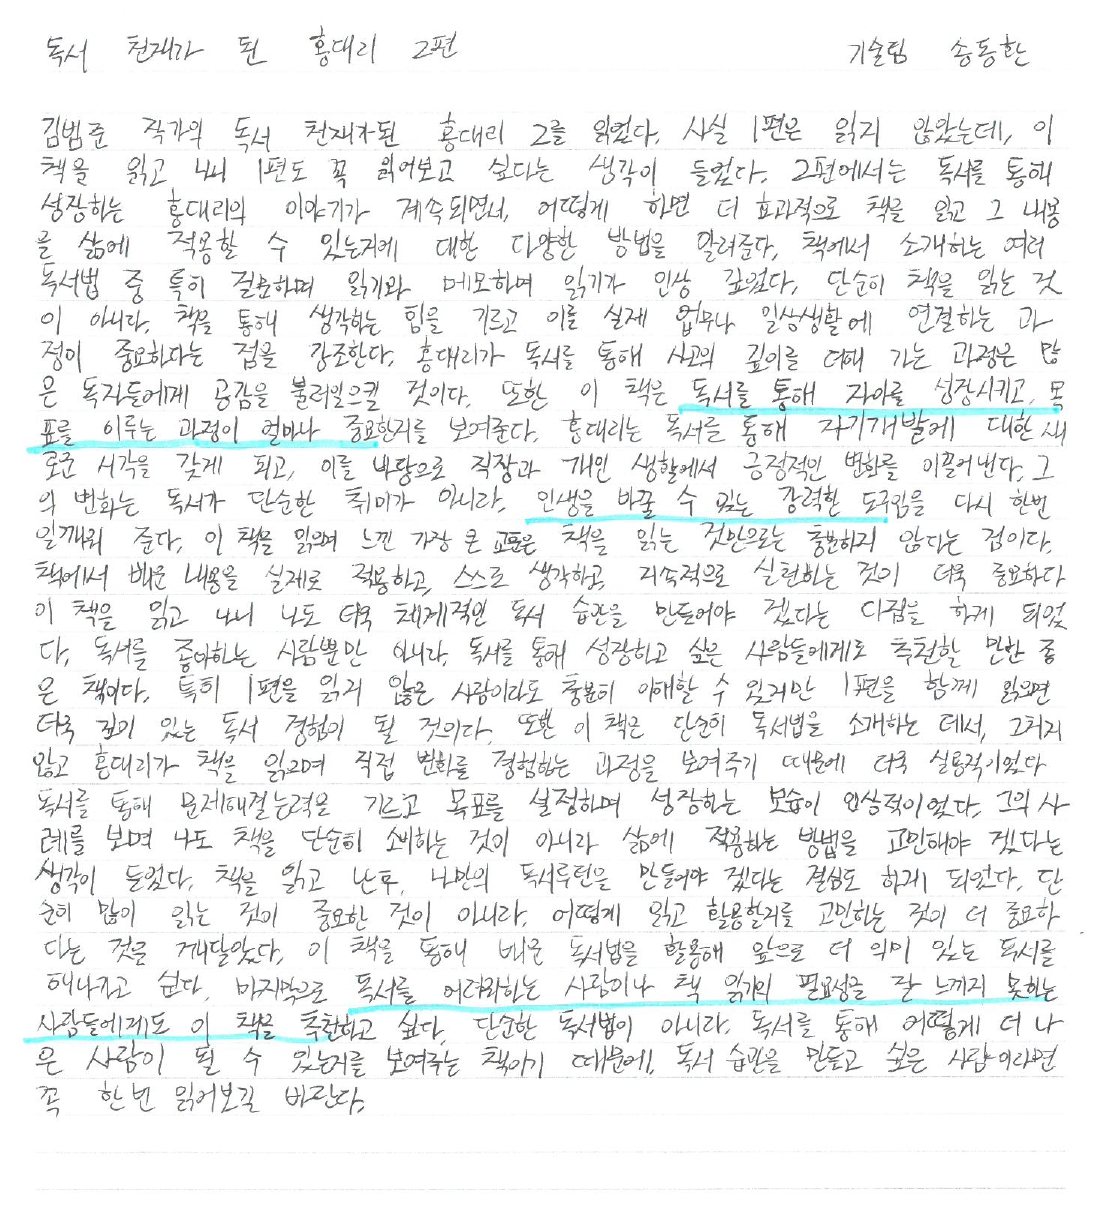 독서 천재가 된 홍대리 2편 기술팀 송동환
김범준 작가의 독서 천재가된 홍대리 2를 읽었다. 사실 1편은 읽지 않았는데, 이
책을 읽고 나니 1편도 꼭 읽어보고 싶다는 생각이 들었다. 2편에서는 독서를 통해
성장하는 홍대리의 이야기가 계속되면서, 어떻게 하면 더 효과적으로 책을 읽고 그 내용
을 삶에 적용할 수 있는거에 대한 다양한 방법을 알려준다. 책에서 소개하는 여러
독서법 중 특히 질문하며 읽기와 메모하며 읽기가 인상 깊었다. 단순히 책을 읽는 것
이 아니다. 책을 통해 생각하는 힘을 기르고 이를 실제 업무나 일상생활에 연결하는 과
정이 중요하다는 점을 강조한다. 홍대리가 독서를 통해 사고의 깊이를 더해 가는 과정은 많
은 독자들에게 공감을 불러일으킬 것이다. 또한 이 책은 독서를 통해 자아를 성장시키고, 목
표를 이루는 과정이 얼마나 중요한지를 보여준다. 홍대리는 독서를 통해 자기개발에 대한 새
로운 시각을 갖게 되고, 이를 바탕으로 직장과 개인 생활에서 긍정적인 변화를 이끌어낸다. 그
의 변화는 독서가 단순한 취미가 아니라, 인생을 바꿀 수 있는 강력한 도구임을 다시 한번
일깨워 준다. 이 책을 읽으며 느낀 가장 큰 교훈은 책을 읽는 것만으로는 충분하지 않다는 점이다.
책에서 배운 내용을 실제로 적용하고, 스스로 생각하고, 지속적으로 실천하는 것이 더욱 중요하다
이 책을 읽고 나니 나도 더욱 체계적인 독서 습관을 만들어야 겠다는 다짐을 하게 되었
다. 독서를 좋아하는 사람뿐만 아니라, 독서를 통해 성장하고 싶은 사람들에게도 추천할 만한 좋
은 책이다. 특히 1편을 읽지 않은 사람이라도 충분히 이해할 수 있지만 1편을 함께 읽으면
더욱 깊이 있는 독서 경험이 될 것이다. 또한 이 책은 단순히 독서법을 소개하는 데서, 그치지
않고 홍대리가 책을 읽으며 직접 변화를 경험하는 과정을 보여주기 때문에 더욱 실용적이었다
독서를 통해 문제해결능력을 기르고 목표를 설정하며 성장하는 모습이 인상적이었다. 그의 사
례를 보며 나도 책을 단순히 소비하는 것이 아니라 삶에 적용하는 방법을 고민해야 겠다는
생각이 들었다. 책을 읽고 난후, 나만의 독서루틴을 만들어야 겠다는 결심도 하게 되었다. 단
순히 많이 읽는 것이 중요한 것이 아니라, 어떻게 읽고 활용할지를 고민하는 것이 더 중요하
다는 것을 깨달았다. 이 책을 통해 배운 독서법을 활용해 앞으로 더 의미 있는 독서를
해나가고 싶다. 마지막으로 독서를 어려워하는 사람이나 책 읽기의 필요성을 잘 느끼지 못하는
사람들에게도 이 책을 추천하고 싶다. 단순한 독서법이 아니라, 독서를 통해 어떻게 더 나
은 사람이 될 수 있는지를 보여주는 책이기 때문에, 독서 습관을 만들고 싶은 사람이라면
꼭 한번 읽어보길 바란다.